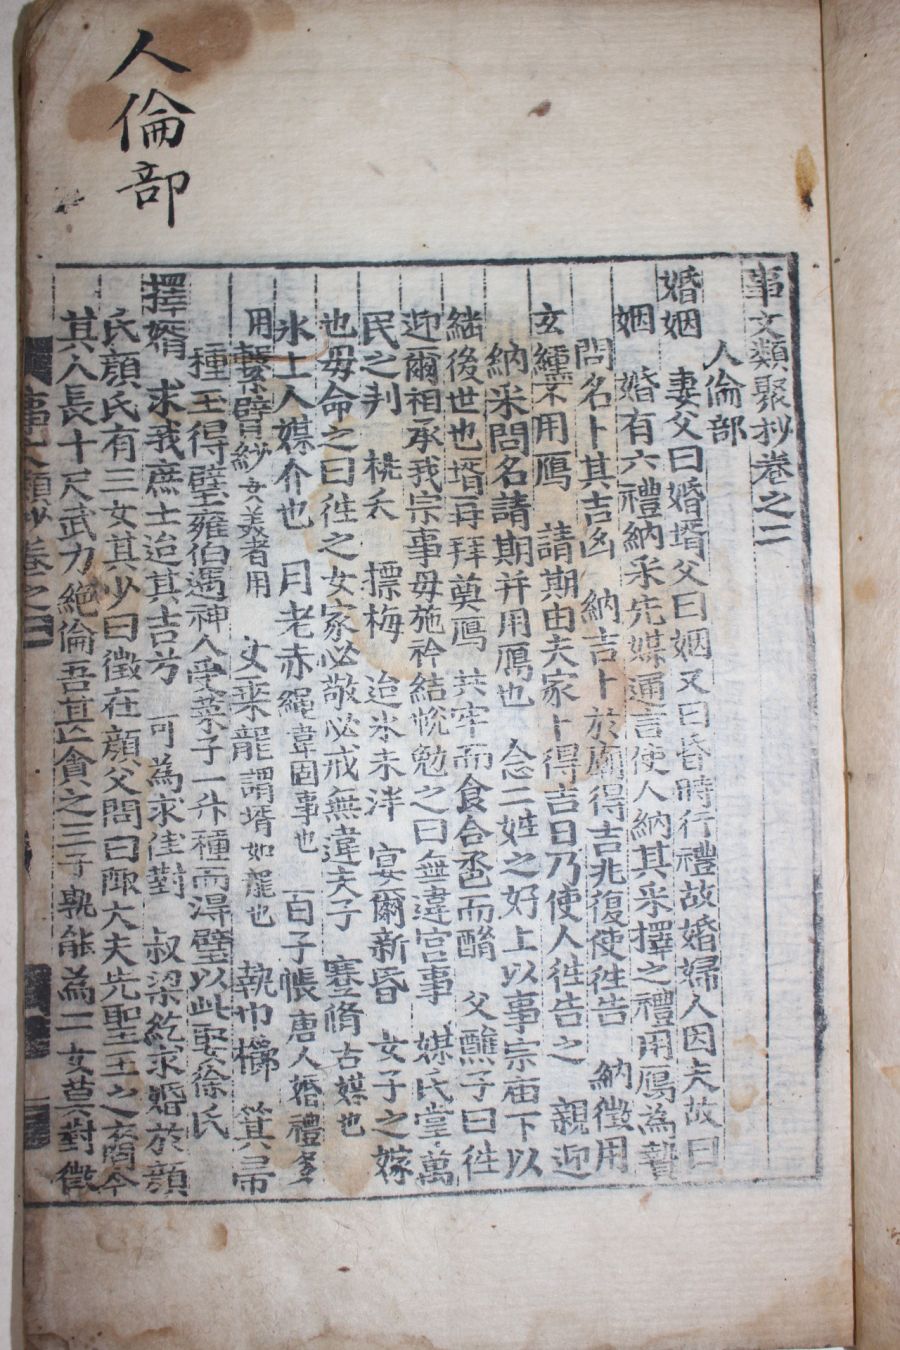 人倫部
事文類聚抄卷之二
人倫部
婚姻 妻父曰婚壻父曰姻又曰昏時行禮故婚婦人因夫故曰
姻 婚有六禮納采先媒通言使人納其采擇之禮用鴈為贄
問名卜其吉凶 納吉卜於廟得吉兆復使徃告 納徴用
玄纁不用鴈 請期由夫家卜得吉日乃使人徃告之 親迎
納采問名請期并用鴈也 合二姓之好上以事宗庙下以
継後世也壻再拜奠鴈 共牢而食合巹而酳 父醮子曰徃
迎爾相承我宗事毋施衿結帨勉之曰無違宫事 媒氏掌萬
民之判 桃夭 摽梅 迨氷未泮 宴爾新昏 女子之嫁
也毋命之曰徃之女家必敬必戒無違夫子 蹇脩古媒也
氷上人媒介也 月老赤繩韋固事也 百子帳唐人婚禮多
用 繫臂紗女美者用 女乘龍謂壻如龍也 執巾櫛 箕帚
種玉得璧雍伯遇神人受菜子一升種而淂璧以此娶徐氏
擇壻 求我庶士迨其吉兮 可為求佳對 叔梁紇求婚於顔
氏顔氏有三女其少曰徴在顔父問曰陬大夫先聖王之裔今
其人長十尺武力絶倫吾甚貪之三子孰能為 二女莫對徴
事文類抄 卷之二